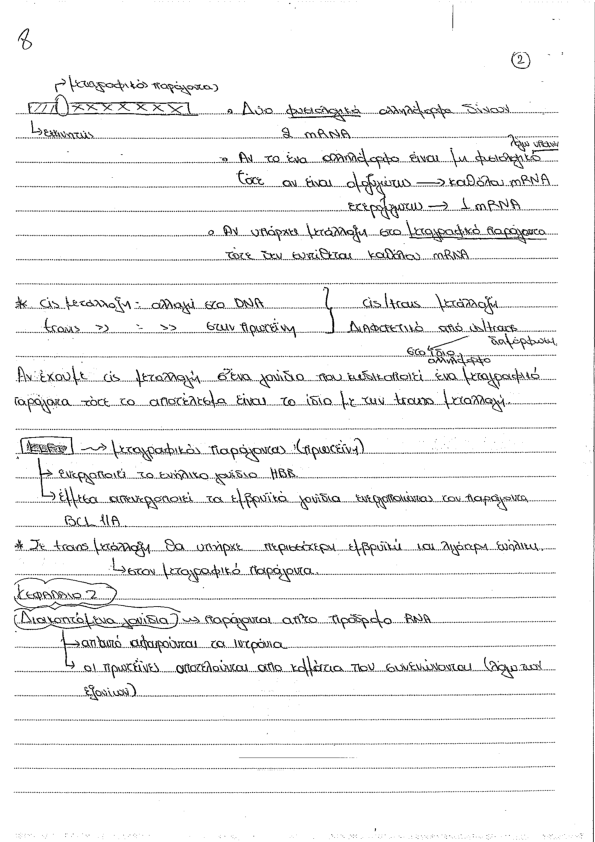 8
2
μεταγραφικός παράγοντας
• Δύο φυσιολογικά αλληλόμορφα δίνουν
εκκινητής
2 mRNA
• Αν το ένα αλληλόμορφο είναι μη φυσιολογικό
τότε αν είναι ομοζυγώτης → καθόλου mRNA
ετεροζυγώτης → 1 mRNA
• Αν υπάρχει μετάλλαξη στο μεταγραφικό παράγοντα
τότε δεν εκτίθεται καθόλου mRNA
* cis μετάλλαξη: αλλαγή στο DNA
trans >> : >> στην πρωτεΐνη
cis/trans μετάλλαξη
Διαφορετικό από cis/trans διαμόρφωση
στο ίδιο αλληλόμορφο
Αν έχουμε cis μεταλλαγή σ'ένα γονίδιο που κωδικοποιεί ένα μεταγραφικό
παράγοντα τότε το αποτέλεσμα είναι το ίδιο με την trans μεταλλαγή.
→ μεταγραφικός παράγοντας (πρωτεΐνη)
→ ενεργοποιεί το ενήλικο γονίδιο HBB.
→ έμμεσα απενεργοποιεί τα εμβρυϊκά γονίδια ενεργοποιώντας τον παράγοντα
BCL 11A.
* Σε trans μετάλλαξη θα υπήρχε περισσότερη εμβρυϊκή και λιγότερη ενήλικη.
→ στον μεταγραφικό παράγοντα.
ΚΕΦΑΛΑΙΟ 2
Διακοπτόμενα γονίδια → παράγονται απ'το πρόδρομο RNA
→ απ'αυτό αφαιρούνται τα ιντρόνια
→ οι πρωτεΐνες αποτελούνται από κομμάτια που συνενώνονται (λόγω των
εξονίων)